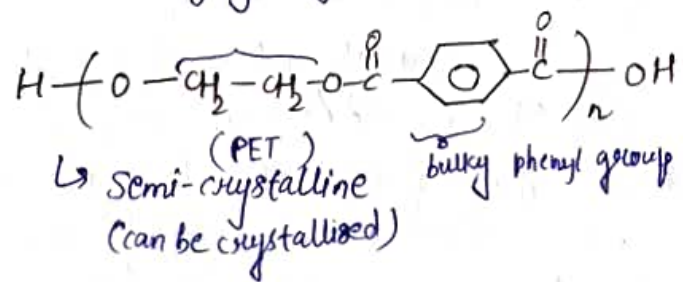 O O
H-(O-CH2-CH2-O-C-C-)n-OH
(PET) bulky phenyl group
↳ Semi-crystalline
(can be crystallized)